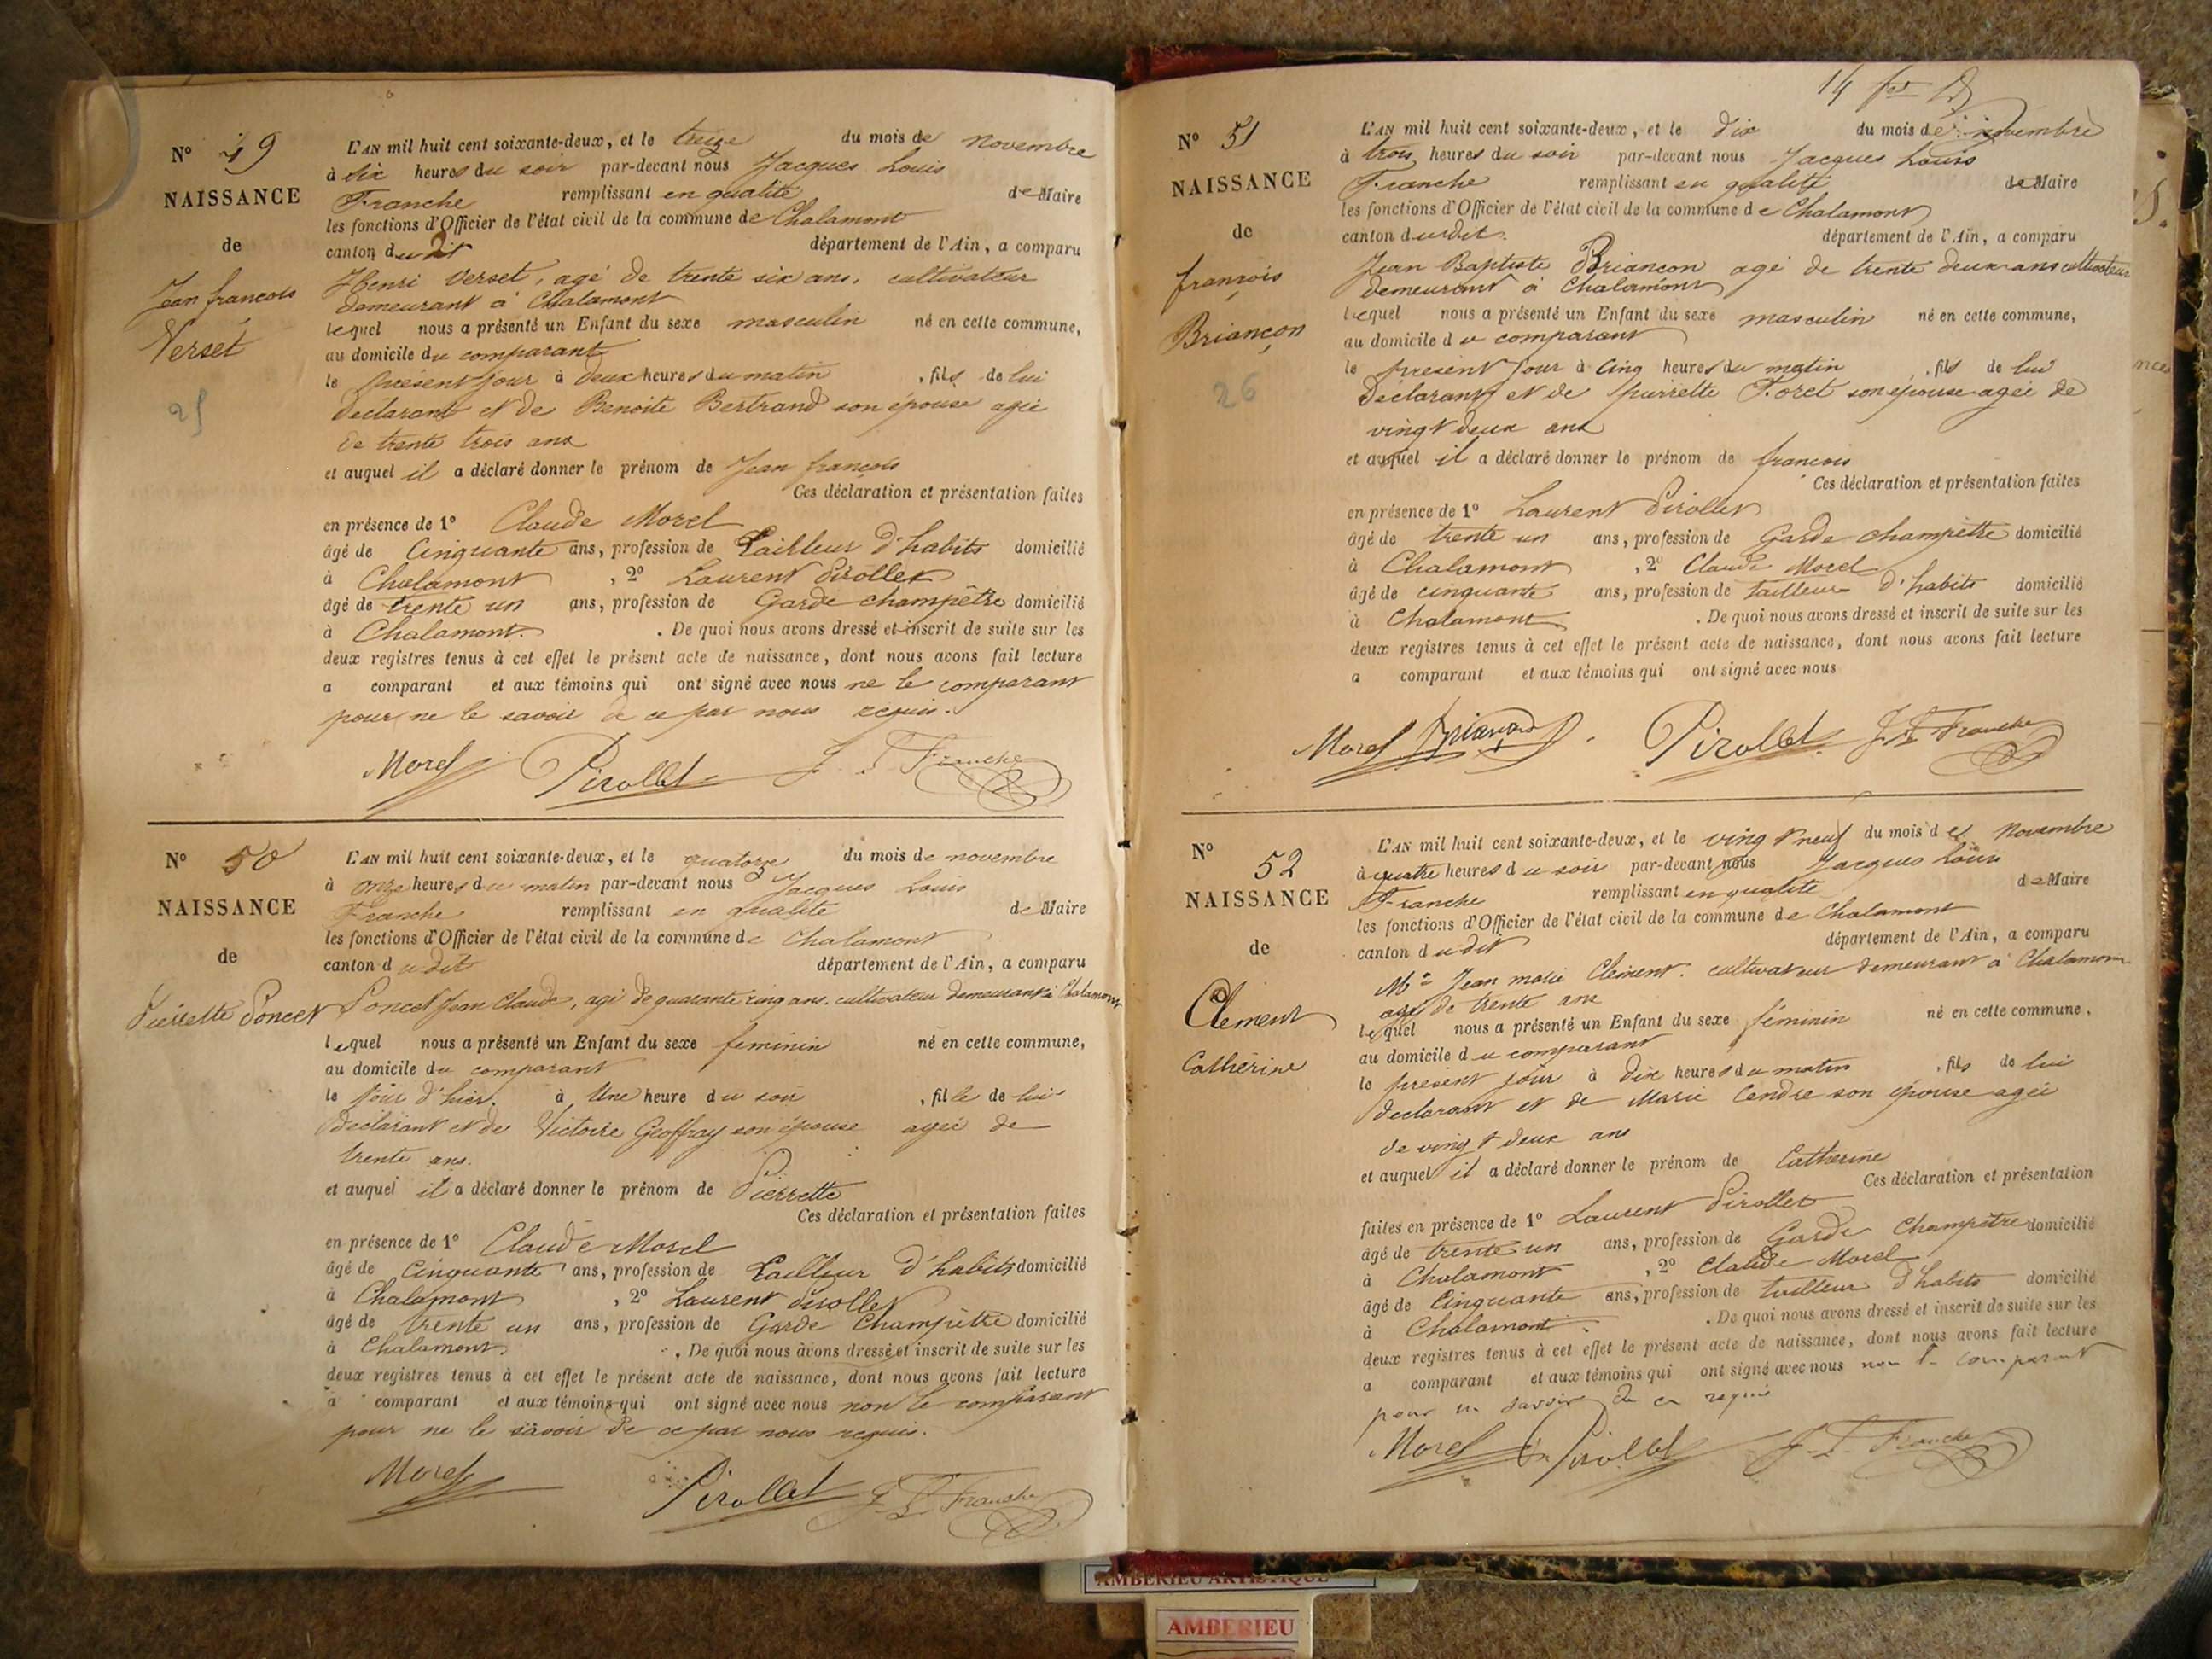 Nº 49
NAISSANCE
de
Jean françois
Verset
25
L'AN mil huit cent soixante-deux, et le treize du mois de novembre
à six heures du soir par-devant nous Jacques Louis
Franche remplissant en qualité de Maire
les fonctions d'Officier de l'état civil de la commune de Chalamont
canton dudit département de l'Ain, a comparu
Henri Verset, agé de trente six ans, cultivateur
demeurant à Chalamont
lequel nous a présenté un Enfant du sexe masculin né en cette commune,
au domicile du comparant
le présent jour à deux heures du matin, fils de lui
déclarant et de Benoite Bertrand son épouse agée
de trente trois ans
et auquel il a déclaré donner le prénom de Jean françois
Ces déclaration et présentation faites
en présence de 1º Claude Morel
âgé de Cinquante ans, profession de Tailleur d'habits domicilié
à Chalamont, 2º Laurent Pirollet
âgé de trente un ans, profession de Garde champêtre domicilié
à Chalamont. De quoi nous avons dressé et inscrit de suite sur les
deux registres tenus à cet effet le présent acte de naissance, dont nous avons fait lecture
a comparant et aux témoins qui ont signé avec nous ne le comparant
pour ne le savoir de ce par nous requis.
Morel Pirollet J. L. Franche
Nº 50
NAISSANCE
de
Pierrette Poncet
L'AN mil huit cent soixante-deux, et le quatorze du mois de novembre
à onze heures du matin par-devant nous Jacques Louis
Franche remplissant en qualité de Maire
les fonctions d'Officier de l'état civil de la commune de Chalamont
canton dudit département de l'Ain, a comparu
Poncet Jean Claude, agé de quarante cinq ans, cultivateur demeurant à Chalamont
lequel nous a présenté un Enfant du sexe feminin né en cette commune,
au domicile du comparant
le jour d'hier, à Une heure du soir, fille de lui
déclarant et de Victoire Geoffray son épouse agée de
trente ans.
et auquel il a déclaré donner le prénom de Pierrette
Ces déclaration et présentation faites
en présence de 1º Claude Morel
âgé de Cinquante ans, profession de Tailleur d'habits domicilié
à Chalamont, 2º Laurent Pirollet
âgé de trente un ans, profession de Garde Champêtre domicilié
à Chalamont. De quoi nous avons dressé et inscrit de suite sur les
deux registres tenus à cet effet le présent acte de naissance, dont nous avons fait lecture
a comparant et aux témoins qui ont signé avec nous non le comparant
pour ne le savoir de ce par nous requis.
Morel Pirollet J. L. Franche
14
Nº 51
NAISSANCE
de
françois
Briançon
26
L'AN mil huit cent soixante-deux, et le dix du mois de novembre
à trois heures du soir par-devant nous Jacques Louis
Franche remplissant en qualité de Maire
les fonctions d'Officier de l'état civil de la commune de Chalamont
canton dudit. département de l'Ain, a comparu
Jean Baptiste Briancon agé de trente deux ans cultivateur
demeurant à Chalamont
lequel nous a présenté un Enfant du sexe masculin né en cette commune,
au domicile du comparant
le présent jour à cinq heures du matin, fils de lui
déclarant et de pierrette Foret son épouse agée de
vingt deux ans
et auquel il a déclaré donner le prénom de françois
Ces déclaration et présentation faites
en présence de 1º Laurent Pirollet
âgé de trente un ans, profession de Garde champêtre domicilié
à Chalamont, 2º Claude Morel
âgé de cinquante ans, profession de tailleur d'habits domicilié
à Chalamont. De quoi nous avons dressé et inscrit de suite sur les
deux registres tenus à cet effet le présent acte de naissance, dont nous avons fait lecture
a comparant et aux témoins qui ont signé avec nous
Morel Briançon Pirollet J. L. Franche
Nº 52
NAISSANCE
de
Clement
Cathérine
L'AN mil huit cent soixante-deux, et le vingt neuf du mois de Novembre
à quatre heures du soir par-devant nous Jacques Louis
Franche remplissant en qualité de Maire
les fonctions d'Officier de l'état civil de la commune de Chalamont
canton dudit département de l'Ain, a comparu
Mr Jean marie Clément. cultivateur demeurant à Chalamont
agé de trente ans
lequel nous a présenté un Enfant du sexe féminin né en cette commune,
au domicile du comparant
le présent jour à dix heures du matin, fils de lui
déclarant et de Marie Cendre son épouse agée
de vingt deux ans
et auquel il a déclaré donner le prénom de Catherine
Ces déclaration et présentation
faites en présence de 1º Laurent Pirollet
âgé de trente un ans, profession de Garde Champêtre domicilié
à Chalamont, 2º Claude Morel
âgé de Cinquante ans, profession de tailleur d'habits domicilié
à Chalamont. De quoi nous avons dressé et inscrit de suite sur les
deux registres tenus à cet effet le présent acte de naissance, dont nous avons fait lecture
a comparant et aux témoins qui ont signé avec nous non le comparant
pour ne savoir de ce requis
Morel Pirollet J. L. Franche
AMBERIEU ARTISTIQUE
AMBERIEU